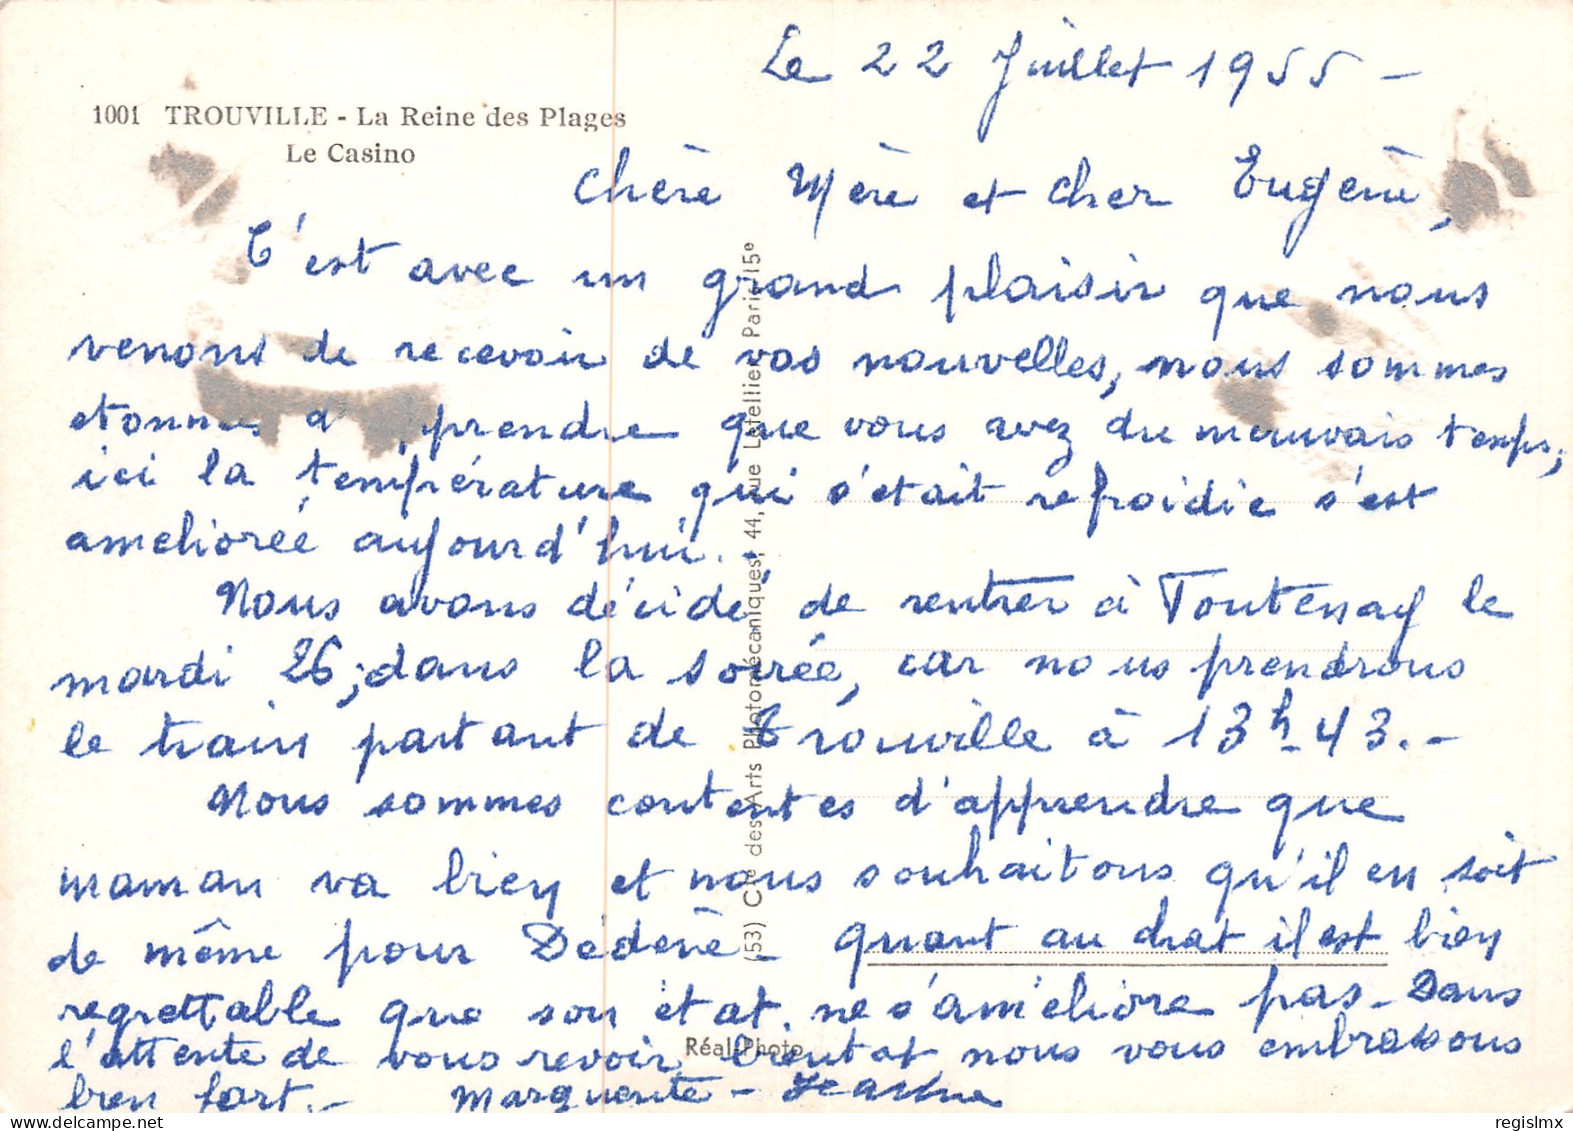 Le 22 Juillet 1955 -
1001 TROUVILLE - La Reine des Plages
Le Casino
Chère Mère et cher Eugène,
C'est avec un grand plaisir que nous
venons de recevoir de vos nouvelles, nous sommes
etonnés d'apprendre que vous avez du mauvais temps,
ici la température qui s'etait refroidie s'est
ameliorée aujourd'hui.-
Nous avons décidé de rentrer à Toutenay le
mardi 26, dans la soirée, car nous prendrons
le train partant de Trouville à 13h-43.-
Nous sommes contentes d'apprendre que
maman va bien et nous souhaitons qu'il en soit
de même pour Dédène- quant au chat il est bien
regrettable que son état ne s'améliore pas- Dans
l'attente de vous revoir bientot nous vous embrassons
bien fort.- Marguerite - Jeanne
(53) Cie des Arts Photomécaniques, 44, rue Letellier Paris-15e
Réal-Photo
regislmx